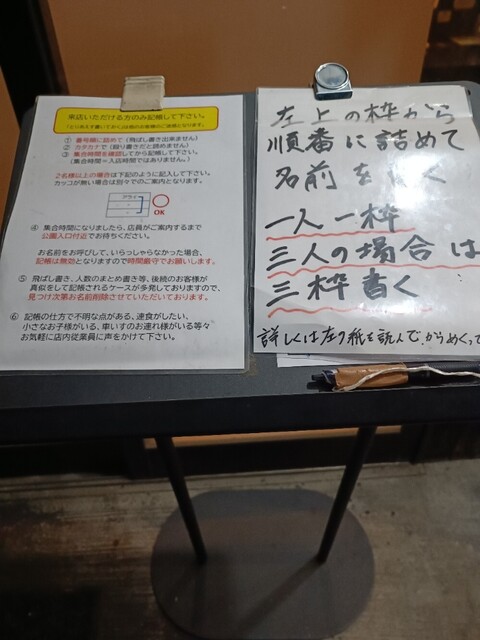 来店いただける方のみ記帳して下さい。
① 番号順に詰めて（飛ばし書き出来ません）
② カタカナで（殴り書きだと読めません）
③ 集合時間を確認してから記帳して下さい。
（集合時間＝入店時間ではありません。）
2名様以上の場合は下記のように記入して下さい。
カッコが無い場合は別々でのご案内となります。
OK
④ 集合時間になりましたら、店員がご案内するまで
公園入口付近でお待ちください。
お名前をお呼びして、いらっしゃらなかった場合、
記帳は無効となりますので時間厳守でお願いします。
⑤ 飛ばし書き、人数のまとめ書き等、後続のお客様が
真似をして記帳されるケースが多発しておりますので、
見つけ次第お名前削除させていただいております。
⑥ 記帳の仕方で不明な点がある、連食がしたい、
小さなお子様がいる、車いすのお連れ様がいる等々
お気軽に店内従業員に声をかけて下さい。
左上の枠から
順番に詰めて
名前を書く
一人一枠
三人の場合は
三枠書く
詳しくは左の紙を読んでからめくって